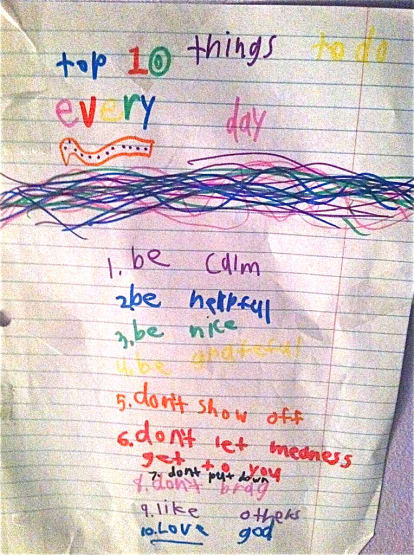 top 10 things to do
every day
1. be calm
2. be helpful
3. be nice
4. be grateful
5. dont show off
6. dont let medness
get to you
7. dont put down
8. dont brag
9. like others
10. Love god